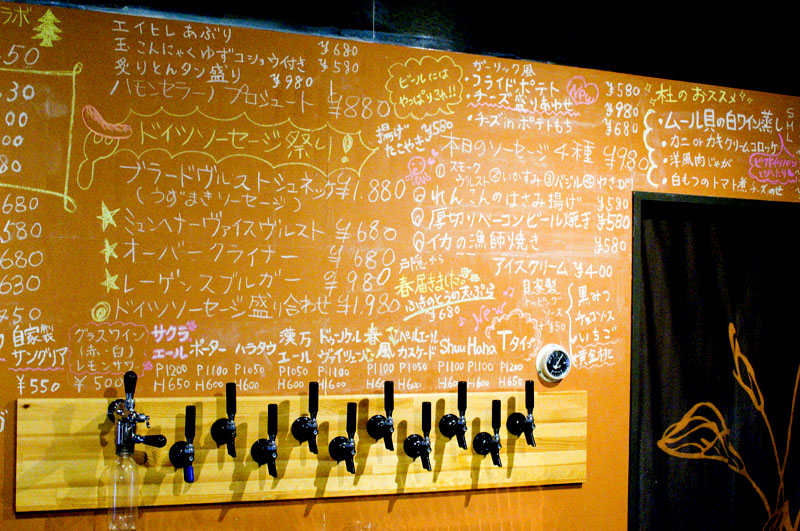 ラボ
50
30
00
00
680
580
680
630
750
エイヒレ あぶり ¥680
玉こんにゃく ゆずコショウ付き ¥580
炙りとんタン盛り ¥980
ハモンセラーノ プロシュート ¥880
ドイツソーセージ祭り!
ブラードヴルストシュネッケ ¥1,880
(うずまきソーセージ)
ミュンヘナーヴァイスヴルスト ¥680
オーバークライナー ¥680
レーゲンスブルガー ¥980
ドイツソーセージ盛り合わせ ¥1,980
ビールには
やっぱりコレ!!
揚げ
たこやき ¥580
ガーリック風
・フライドポテト ¥580
New
・チーズ盛りあわせ ¥980
・チーズinポテトもち ¥680
本日のソーセージ4種 ¥980
①スモークヴルスト ②いかすみ ③バジル ④わさび
れんこんのはさみ揚げ ¥580
厚切りベーコンビール焼き ¥580
イカの漁師焼き ¥580
戸隠から
春届きました
ふきのとうの天ぷら
¥680
アイスクリーム ¥400
自家製
トッピング
ソース
¥50
黒みつ
チョコソース
いちご
黄金桃
杜のおススメ
・ムール貝の白ワイン蒸し
・カニのカキクリームコロッケ
・洋風肉じゃが
・白もつのトマト煮 チーズのせ
自家製
サングリア
¥550
グラスワイン
(赤・白)
レモンサワー
¥500
サクラ
エール
P1200
H650
ポーター
P1100
H600
ハラタウ
P1050
H600
漢方
エール
P1100
H600
ドゥンケル
ヴァイツェン
P1100
H600
春風
P1100
H600
ペールエール
カスケード
P1100
H600
Shuu Hana
P1200
H650
Tタイプ